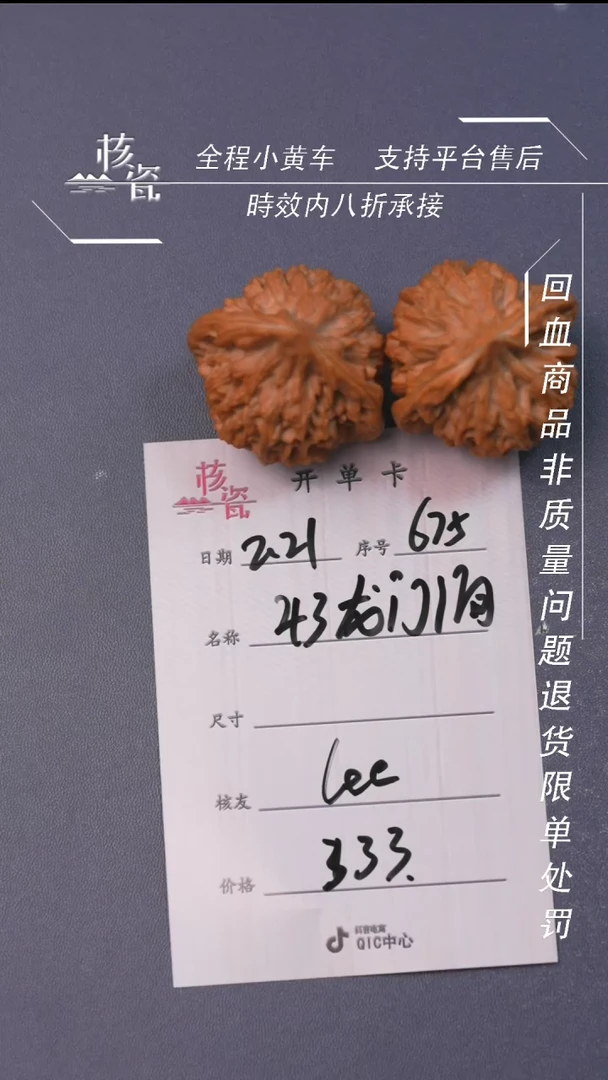 核瓷
全程小黄车 支持平台售后
時效内八折承接
回血商品非质量问题退货限单处罚
核瓷 开单卡
日期 2.21 序号 675
名称 43龙门
尺寸
核友 Lee
价格 333.
抖音电商
QIC中心